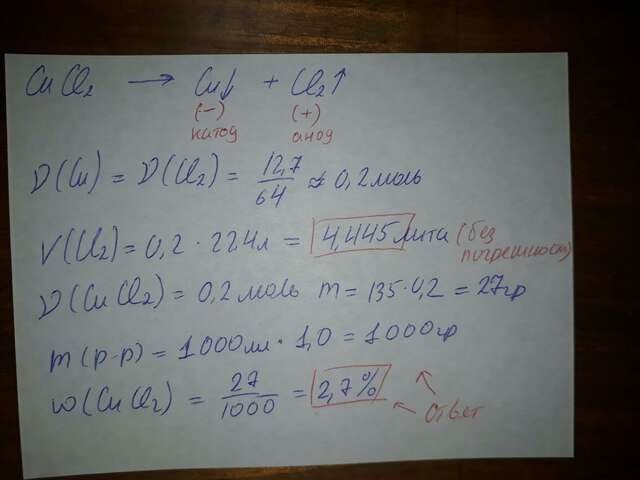 CuCl2 → Cu↓ + Cl2↑
(-) (+)
катод анод
ν(Cu) = ν(Cl2) = 12,7/64 ≈ 0,2 моль
V(Cl2) = 0,2 · 22,4л = 4,445 лита (без погрешност)
ν(CuCl2) = 0,2 моль m = 135·0,2 = 27гр
m(р-р) = 1000мл · 1,0 = 1000гр
ω(CuCl2) = 27/1000 = 2,7%
ответ